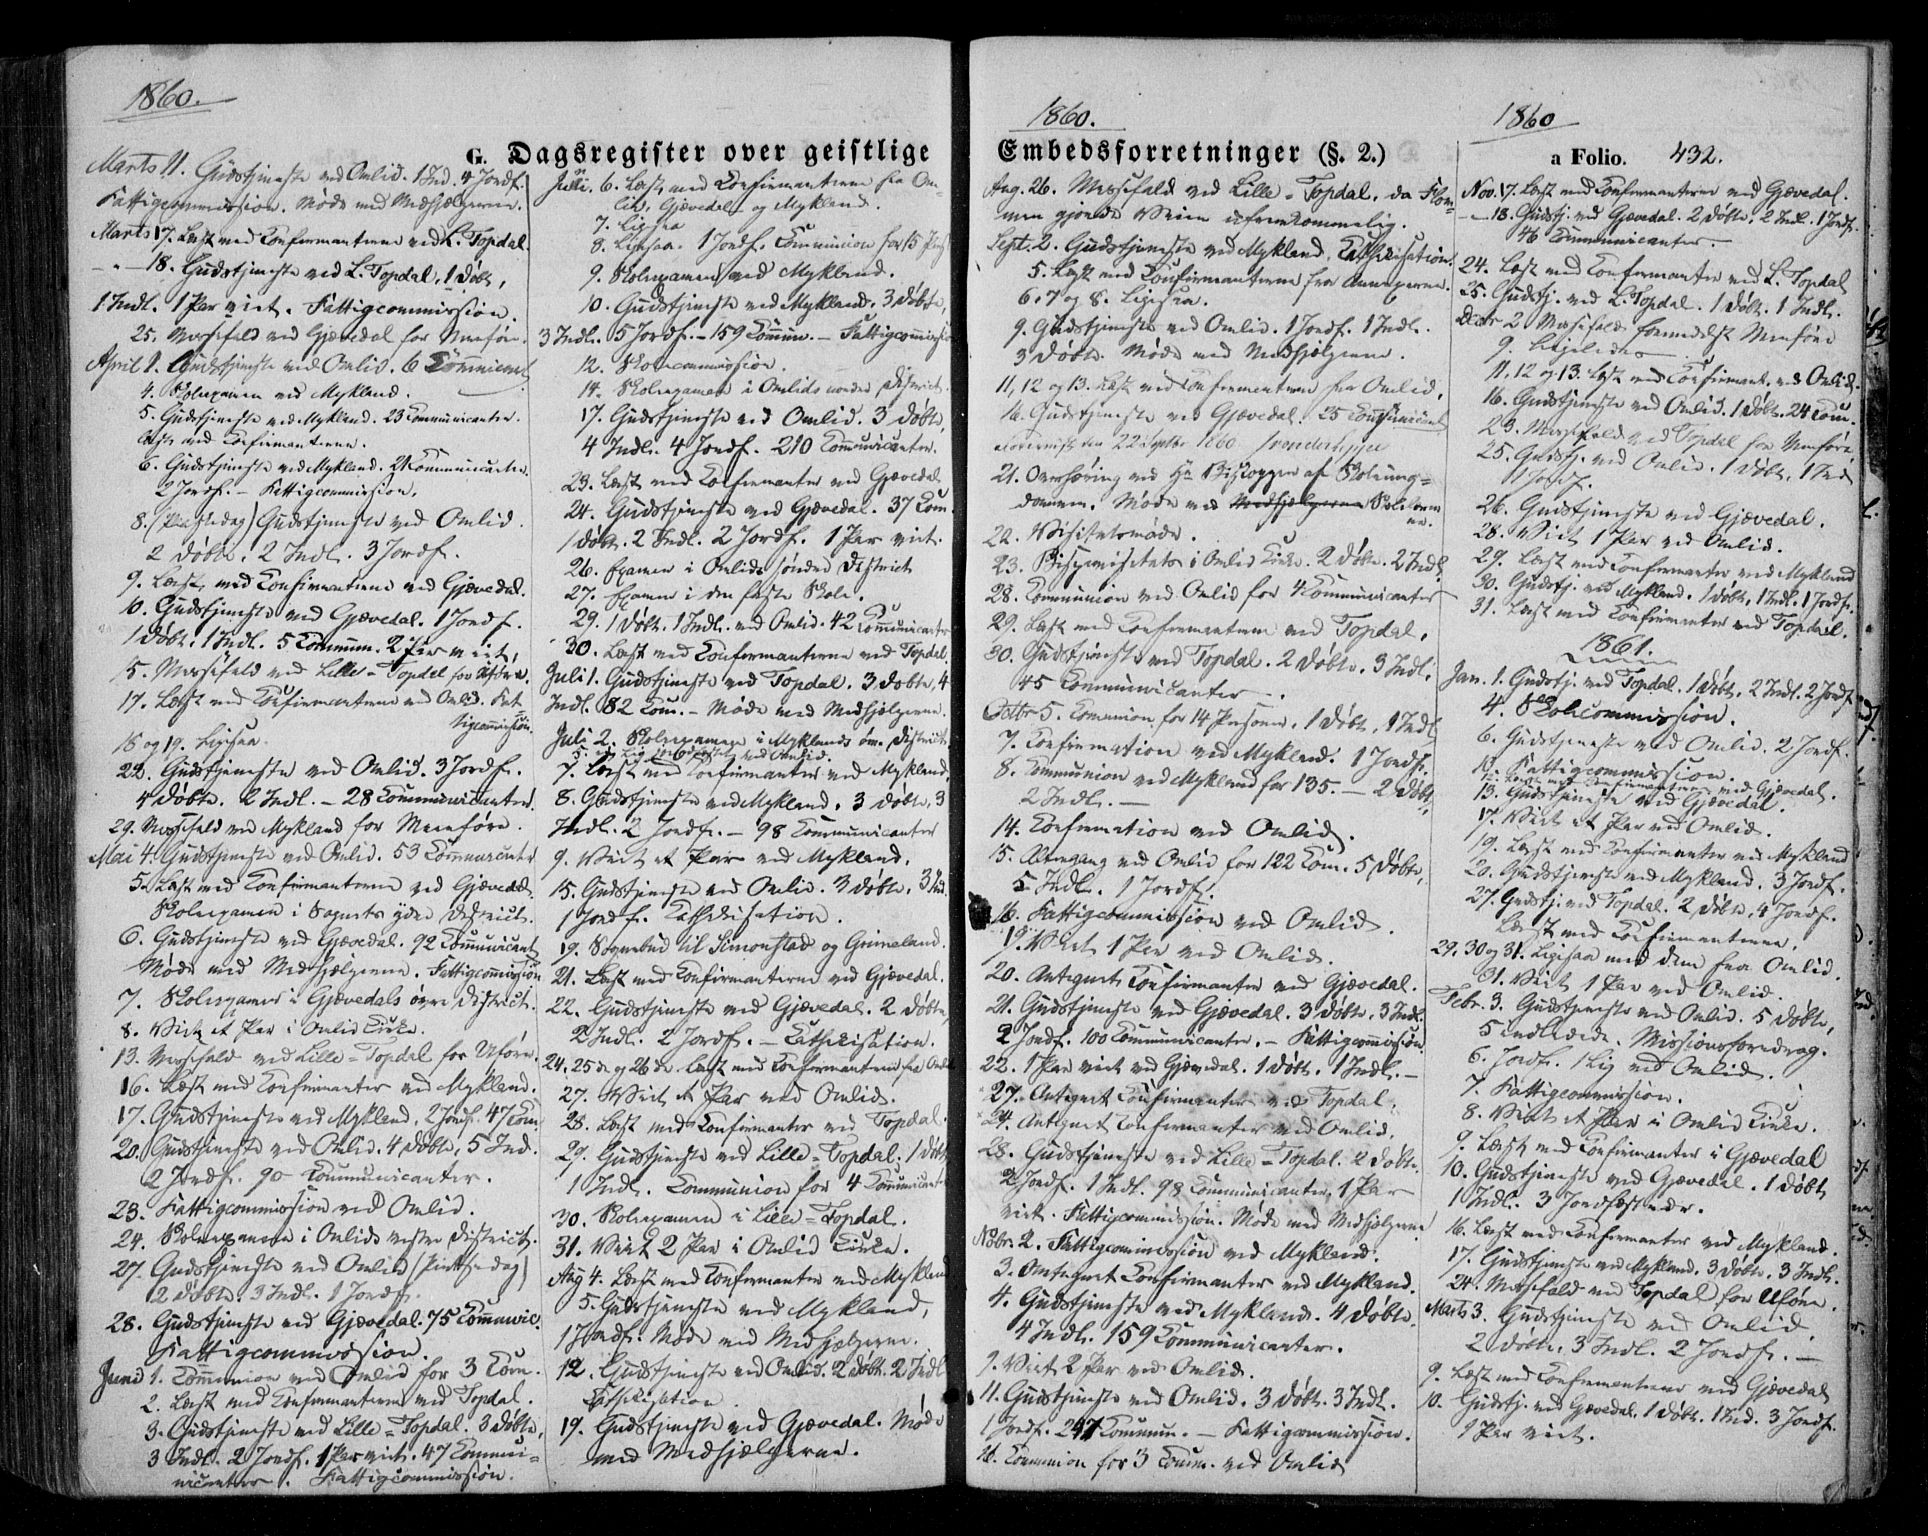 1860.
G. Dagsregister over geistlige
Marts 11. Gudstjeneste ved Omlid. 1 Ind. 4 Jordf.
Fattigcommission. Møde med Medhjælperne.
Marts 17. Læst med Confirmanterne ved L. Topdal.
-"- 18. Gudstjeneste ved L. Topdal, 1 Døbt,
1 Indl. 1 Par viet. Fattigcommission.
25. Messefald ved Gjævedal for Menføre.
April 1. Gudstjeneste ved Omlid. 6 Communicant.
4. Skolexamen ved Mykland.
5. Gudstjeneste ved Mykland. 23 Communicanter.
Læst med Confirmanterne.
6. Gudstjeneste ved Mykland. 21 Communicanter.
2 Jordf. - Fattigcommission.
8. (Paaskedag) Gudstjeneste ved Omlid.
2 Døbte. 2 Indl. 3 Jordf.
9. Læst med Confirmanterne ved Gjævedal.
10. Gudstjeneste ved Gjævedal. 1 Jordf.
1 Døbt. 1 Indl. 5 Commun. 2 Par viet,
15. Messefald ved Lille-Topdal for Uføre.
17. Læst med Confirmanterne ved Omlid. Fat-
tigcommission.
18 og 19. Ligesaa.
22. Gudstjeneste ved Omlid. 3 Jordf.
4 Døbte. 2 Indl. - 28 Communicanter.
29. Messefald ved Mykland for Menføre.
Mai 4. Gudstjeneste ved Omlid. 53 Communicanter
5. Læst med Confirmanterne ved Gjævedal.
Skolexamen i Sognets ydre District.
6. Gudstjeneste ved Gjævedal. 92 Communicant
Møde med Medhjælperne. Fattigcommission
7. Skolexamen i Gjævedals øvre District.
8. Viet et Par i Omlid Kirke.
13. Messefald ved Lille-Topdal for Uføre.
16. Læst med Confirmanter ved Mykland.
17. Gudstjeneste ved Mykland. 2 Jordf. 47 Com
20. Gudstjeneste ved Omlid. 4 Døbte, 5 Ind.
2 Jordf. 90 Communicanter.
23. Fattigcommission ved Omlid.
24. Skolexamen i Omlids vestre District.
27. Gudstjeneste ved Omlid (Pintsedag)
2 Døbte. 3 Indl. 1 Jordf.
28. Gudstjeneste ved Gjævedal. 75 Communic.
Fattigcommission.
Juni 1. Communion ved Omlid for 3 Com.
2. Læst med Confirmanterne ved Topdal.
3. Gudstjeneste ved Lille-Topdal. 3 Døbte,
3 Indl. 2 Jordf. 1 Par viet. 47 Commu-
nicanter. Fattigcommission.
6. Læst med Confirmanterne fra Om-
lid, Gjævedal og Mykland.
7. Ligesaa
8. Ligesaa. 1 Jordf. Communion for 15 Pers
9. Skolexamen ved Mykland.
10. Gudstjeneste ved Mykland. 3 Døbte,
3 Indl. 5 Jordf. - 159 Commun. - Fattigcommission
12. Skolecommission.
14. Skolexamen i Omlids nordre District.
17. Gudstjeneste ved Omlid. 3 Døbte,
4 Indl. 4 Jordf. 210 Communicanter.
23. Læst med Confirmanter ved Gjævedal
24. Gudstjeneste ved Gjævedal. 37 Com.
1 Døbt. 2 Indl. 2 Jordf. 1 Par viet.
26. Examen i Omlids søndre District
27. Examen i den faste Skole.
29. 1 Døbt. 1 Indl. ved Omlid. 42 Communicanter
30. Læst med Confirmanterne ved Topdal.
Juli 1. Gudstjeneste ved Topdal. 3 Døbte, 4
Indl. 82 Com. - Møde med Medhjælperne.
Juli 2. Skolexamen i Myklands øvre District.
7. Læst med Confirmanter ved Mykland.
8. Gudstjeneste ved Mykland. 3 Døbte, 3
Indl. 2 Jordf. - 98 Communicanter
9. Viet et Par ved Mykland.
15. Gudstjeneste ved Omlid. 3 Døbte, 3 Ind.
1 Jordf. Cathekisation.
19. Sognebud til Simonstad og Grimeland.
21. Læst med Confirmanterne ved Gjævedal.
22. Gudstjeneste ved Gjævedal. 2 Døbte,
2 Indl. 2 Jordf. - Cathekisation.
24, 25de og 26de Læst med Confirmanterne fra Omlid
27. Viet et Par ved Omlid.
28. Læst med Confirmanter ved Topdal.
29. Gudstjeneste ved Lille-Topdal. 1 Døbt
1 Indl. Communion for 4 Communicanter
30. Skolexamen i Lille-Topdal.
31. Viet 2 Par i Omlid Kirke.
Aug 4. Læst med Confirmanter ved Mykland
5. Gudstjeneste ved Mykland,
1 Jordf. Møde med Medhjælperne.
12. Gudstjeneste ved Omlid. 2 Døbt. 2 Indl
Cathekisation.
19. Gudstjeneste ved Gjævedal. Møde
med Medhjælperne.
1860.
Embedsforretninger (§. 2.)
Aug. 26. Messefald ved Lille-Topdal, da Flom-
men gjorde Veien ufremkommelig.
Sept. 2. Gudstjeneste ved Mykland, Cathekisation.
5. Læst med Confirmanterne fra Annexerne.
6. 7 og 8. Ligesaa.
9. Gudstjeneste ved Omlid. 1 Jordf. 1 Indl.
3 Døbte. Møde med Medhjælperne.
11, 12 og 13. Læst med Confirmanterne fra Omlid.
16. Gudstjeneste ved Gjævedal. 25 Communicant
22 Septbr 1860
21. Overhøring ved Hr Biskoppen af Skoleung-
dommen. Møde med Medhjælperne Skolelærer
ne.
22. Visitatsmøde.
23. Bispevisitats i Omlid Kirke. 2 Døbte. 2 Indl.
28. Communion ved Omlid for 4 Communicanter
29. Læst med Confirmanterne ved Topdal.
30. Gudstjeneste ved Topdal. 2 Døbte. 3 Indl.
45 Communicanter.
Octbr 5. Communion for 14 Personer. 1 Døbt, 1 Indl
7. Confirmation ved Mykland. 1 Jordf.
8. Communion ved Mykland for 135. - 2 Døbt,
2 Indl. -
14. Confirmation ved Omlid.
15. Altergang ved Omlid for 122 Com. 5 Døbte,
5 Indl. 1 Jordf.
16. Fattigcommission ved Omlid.
19. Viet 1 Par ved Omlid.
20. Antegnet Confirmanter ved Gjævedal.
21. Gudstjeneste ved Gjævedal. 3 Døbte. 3 Indl.
2 Jordf. 100 Communicanter. - Fattigcommission.
22. 1 Par viet ved Gjævedal. 1 Døbt. 1 Indl. -
27. Antegnet Confirmanter ved Topdal.
24. Antegnet Confirmanter ved Omlid.
28. Gudstjeneste ved Lille-Topdal. 2 Døbte.
2 Jordf. 1 Indl. 98 Communicanter, 1 Par
viet. Fattigcommission. Møde med Medhjælperne
Nobr. 2. Fattigcommission ved Mykland.
3. Antegnet Confirmanter ved Mykland.
4. Gudstjeneste ved Mykland. 4 Døbte.
4 Indl. 159 Communicanter.
9. Viet 2 Par ved Omlid.
11. Gudstjeneste ved Omlid. 3 Døbt. 3 Indl.
1 Jordf. 247 Commun. - Fattigcommission.
16. Communion for 3 Comm. ved Omlid
1860
a Folio. 432.
Nov. 17. Læst med Confirmanterne ved Gjævedal.
-"- 18. Gudstj. ved Gjævedal. 2 Døbte. 2 Indl. 1 Jordf.
46 Communicanter.
24. Læst med Confirmanter ved L. Topdal
25. Gudstj. ved L. Topdal. 1 Døbt. 1 Indl.
Decbr 2 Messefald formedelst Menføre
9. Ligeledes
11. 12 og 13. Læst med Confirmant. ved Omlid.
16. Gudstjeneste ved Omlid. 1 Døbt. 24 Com.
23. Messefald ved Topdal for Menføre.
25. Gudstj. ved Omlid. 1 Døbt, 1 Ind
1 Jordf.
26. Gudstjeneste ved Gjævedal.
28. Viet 1 Par ved Omlid.
29. Læst med Confirmanter ved Mykland
30. Gudstj. ved Mykland. 1 Døbt, 1 Indl. 1 Jordf.
31. Læst med Confirmanter ved Topdal.
1861.
Jan. 1. Gudstj. ved Topdal. 1 Døbt, 2 Indl. 2 Jordf
4. Skolecommission.
6. Gudstjeneste ved Omlid. 2 Jordf.
Fattigcommission.
12. Læst med Confirmanterne ved Gjævedal.
13. Gudstjeneste ved Gjævedal.
17. Viet et Par ved Omlid.
19. Læst med Confirmanter ved Mykland
20. Gudstjeneste ved Mykland. 3 Jordf.
27. Gudstj. ved Topdal. 2 Døbte, 4 Jordf.
Læst med Confirmanterne.
29, 30 og 31. Ligesaa med dem fra Omlid.
31. Viet 1 Par ved Omlid.
Febr. 3. Gudstjeneste ved Omlid. 5 Døbte,
5 indledede. Missionsforedrag.
6. Jordf. 1 Lig ved Omlid.
7. Fattigcommission.
8. Viet et Par i Omlid Kirke.
9. Læst med Confirmanter i Gjævedal
10. Gudstjeneste ved Gjævedal. 1 Døbt,
1 Indl. 3 Jordfæstede.
16. Læst med Confirmanter ved Mykland.
17. Gudstjeneste ved Mykland. 3 Døbte. 3 Indl.
24. Messefald ved Topdal for Uføre.
Marts 3. Gudstjeneste ved Omlid.
2 Døbte, 3 Indl. 2 Jordf. -
9. Læst med Confirmanterne ved Gjævedal
10. Gudstj. ved Gjævedal. 1 Døbt. 1 Ind. 3 Jordf.
1 Par viet.